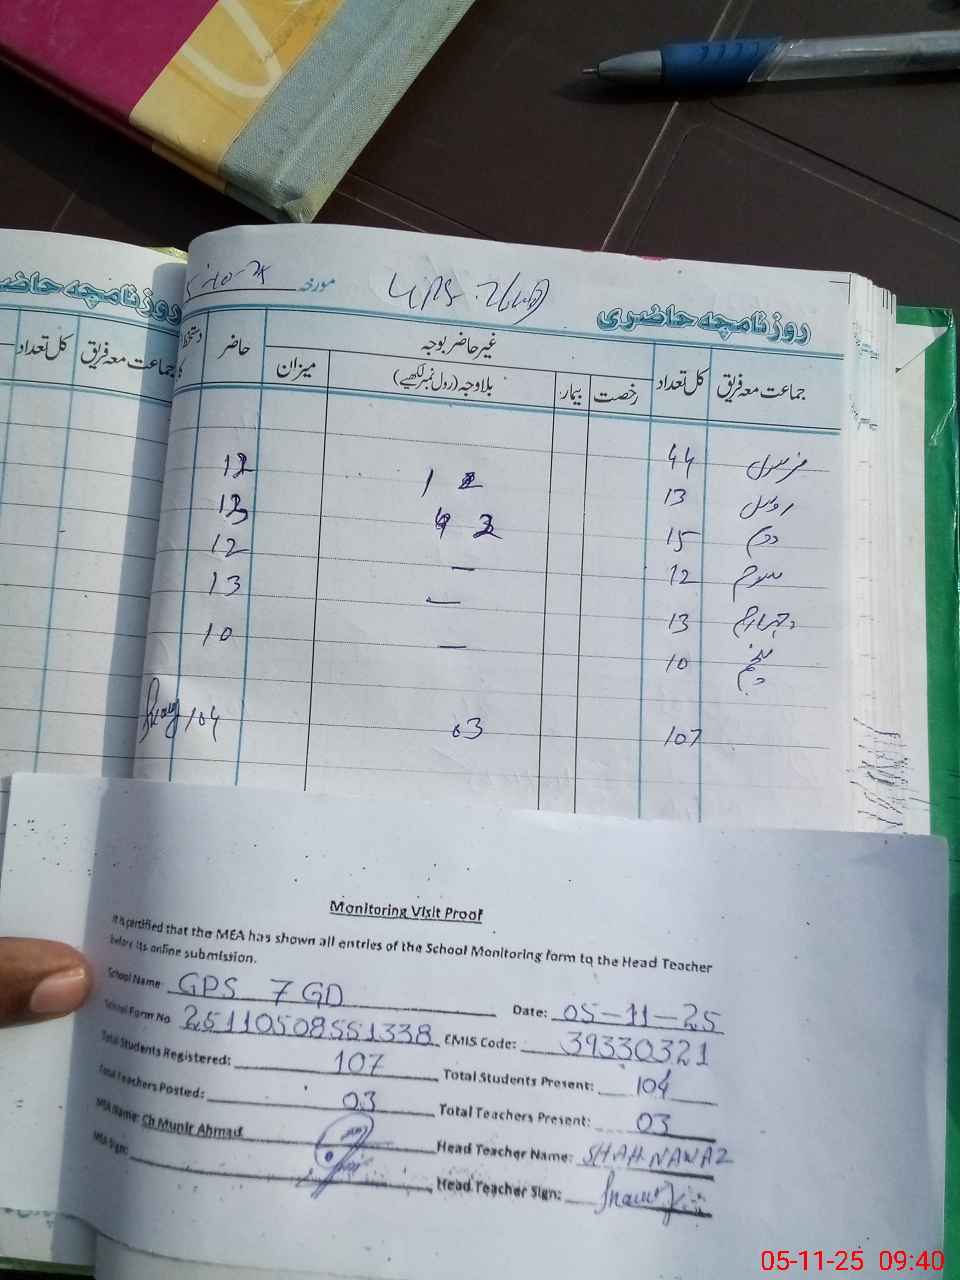 روزنامچہ حاضری
مورخہ
جماعت معہ فریق کل تعداد غیر حاضر بوجہ حاضر
رخصت بیمار بلاوجہ (رول نمبر لکھیے) میزان
روزنامچہ حاضر
جماعت معہ فریق کل تعداد
44
13 1 12
دوم 15 13
سوم 12 — 12
چہارم 13 — 13
پنجم 10 — 10
107 03 104
Monitoring Visit Proof
It is certified that the MEA has shown all entries of the School Monitoring form to the Head Teacher
before its online submission.
School Name: GPS 7 GD Date: 05-11-25
School Form No. 25110508551338 EMIS Code: 39330321
Total Students Registered: 107 Total Students Present: 104
Total Teachers Posted: 03 Total Teachers Present: 03
MEA Name: Ch Munir Ahmad Head Teacher Name: SHAH NAWAZ
MEA Sign: Head Teacher Sign:
05-11-25 09:40